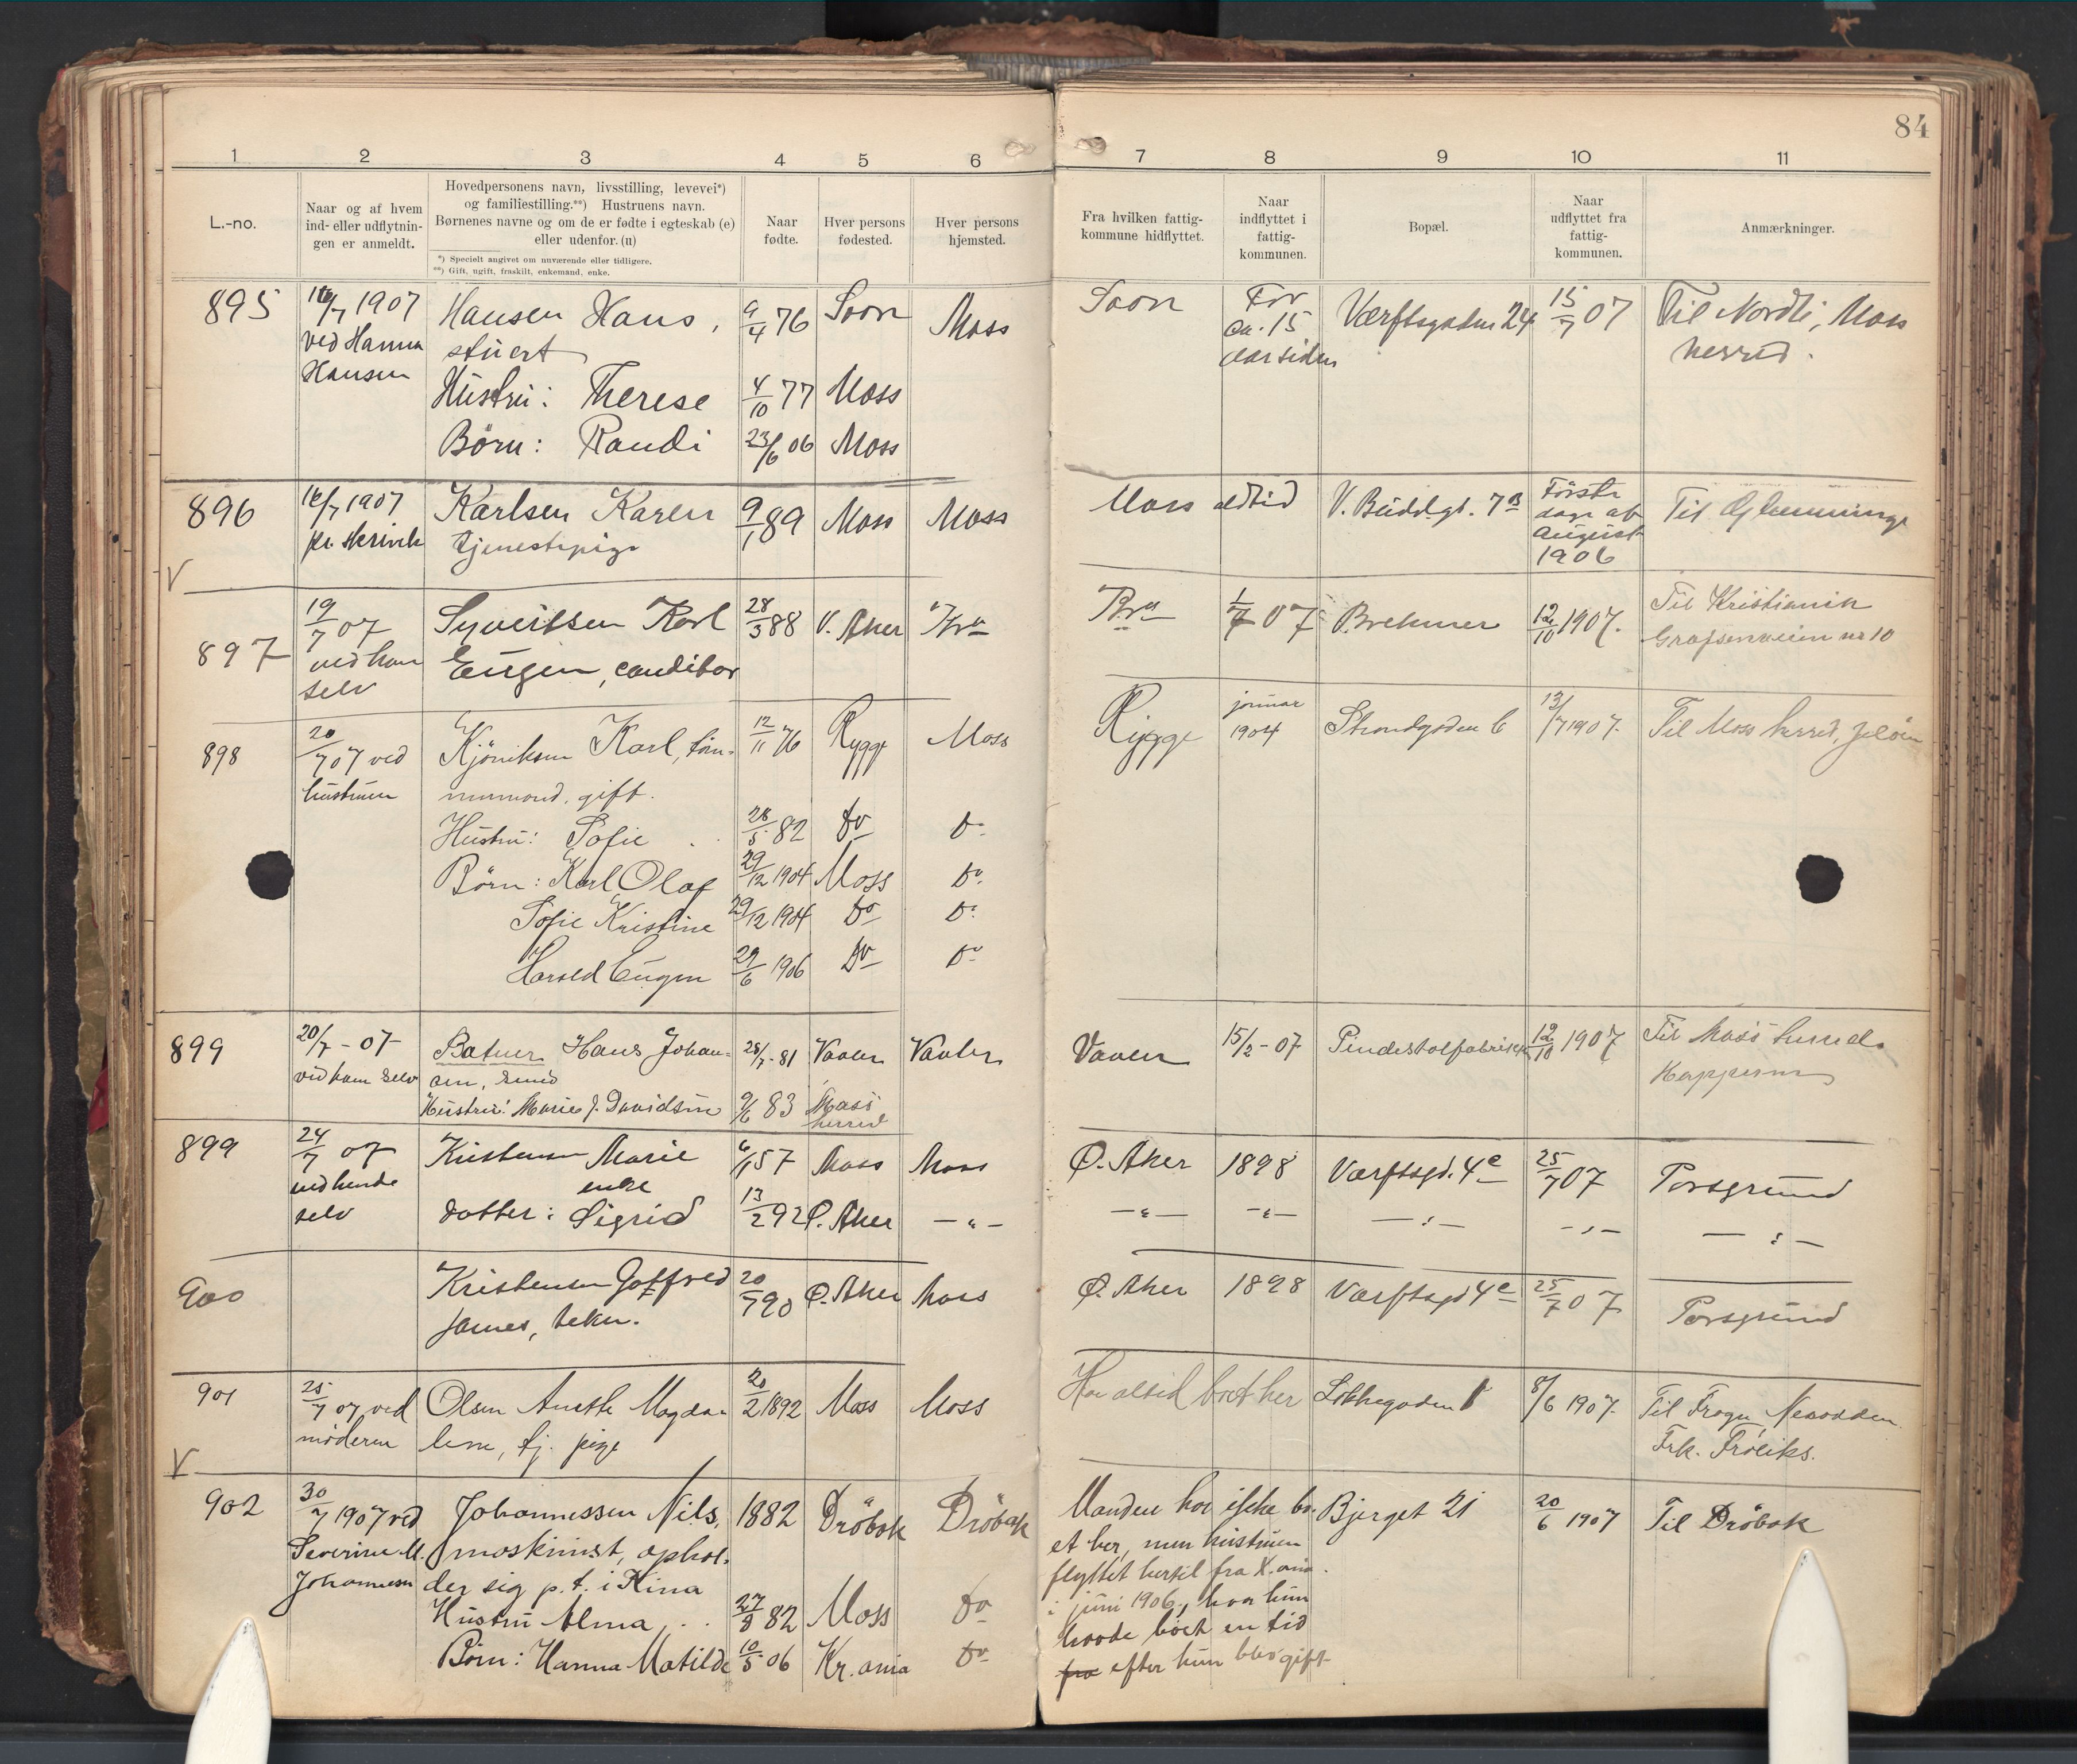 84
1 2 3 4 5 6 7 8 9 10 11
L.-no.
Naar og af hvem
ind- eller udflytnin-
gen er anmeldt.
Hovedpersonens navn, livsstilling, levevei*)
og familiestilling.**) Hustruens navn.
Børnenes navne og om de er fødte i egteskab (e)
eller udenfor. (u)
*) Specielt angivet om nuværende eller tidligere.
**) Gift, ugift, fraskilt, enkemand, enke.
Naar
fødte.
Hver persons
fødested.
Hver persons
hjemsted.
Fra hvilken fattig-
kommune hidflyttet.
Naar
indflyttet i
fattig-
kommunen.
Bopæl.
Naar
udflyttet fra
fattig-
kommunen.
Anmærkninger.
895
/7 1907
ved Hanna
Hansen
Hansen Hans, 9/4 76 Soon Moss
stuert
Hustru: Therese 4/10 77 Moss
Børn: Randi 23/6 06 Moss
Soon
For
ca. 15
aar siden
Værftsgaden 24
15/7 07
Til Nordli, Moss
herred.
896
16/7 1907
Karlsen Karen 9/1 89 Moss Moss
tjenestepige
Moss altid
V. Buddgt. 7B
Første
dage af
August
1906
Til Glemminge
V
897
19/7 07
ved ham
selv
Syvertsen Karl 28/3 88 V. Aker
Eugen, conditor
1/7 07
12/10 1907.
Til Kristiania
nr 10
898
20/7 07 ved
hustruen
Karl, tøm- 12/11 76 Rygge Moss
mermand, gift.
Hustru: Sofie 28/5 82 Do Do
Børn: Karl Olaf 29/12 1904 Moss Do
Sofie Kristine 29/12 1904 Do Do
Harald Eugen 29/6 1906 Do Do
Rygge
januar
1904
Strandgaden 6
13/7 1907.
Til Moss herred, Jeløen
899
20/7 - 07
ved ham selv
Batuer Hans Johan- 28/7 - 81 Vaaler Vaaler
sen, smed
Hustru: Marie J. Davidsen 9/6 83 Moss
herred
Vaaler
15/2 - 07
Pindestolfabriken
12/10 1907
Til Moss herred
899
24/7 07
ved hende
selv
Kristensen Marie 6/1 57 Moss Moss
enke
datter: Sigrid 13/2 92 Ø. Aker — " —
Ø. Aker 1898 Værftsgd. 4e 25/7 07 Porsgrund
— " — — " — — " — — " — — " —
900
Kristensen Gotfred 20/7 90 Ø. Aker Moss
James, tekn.
Ø. Aker 1898 Værftsgd 4e 25/7 07 Porsgrund
901
25/7 07 ved
moderen
Olsen Anethe Magda- 20/2 1892 Moss Moss
lene, tj. pige
Har altid boet her
8/6 1907.
Til Frogn, Nesodden
Frk. Frøliks.
V
902
30/7 1907 ved
Severine M.
Johannessen
Johannessen Nils, 1882 Drøbak Drøbak
maskinist, ophol-
der sig p. t. i Kina
Hustru Alma 27/8 82 Moss Do
Børn: Hanna Matilde 10/5 06 Kr.ania Do
Manden har ikke bo-
et her, men hustruen
flyttet hertil fra K.ania
i juni 1906, hvor hun
havde boet en tid
fra efter hun blev gift
Bjerget 21
20/6 1907
Til Drøbak